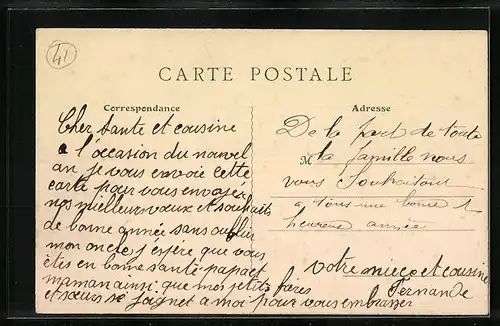 41
CARTE POSTALE
Correspondance
Cher tante et cousine
a l'occasion du nouvel
an je vous envoie cette
carte pour vous envoyer
nos meilleur vœux et souhaits
de bonne année sans oublier
mon oncle j'éspère que vous
êtes en bonne santé papa et
maman ainsi que mes petits frères
et sœurs se joignet a moi pour vous embrasser
Adresse
De la part de toute
M la famille nous
vous Souhaitons
a tous une bonne
heureuse année
votre niece et cousine
Fernande